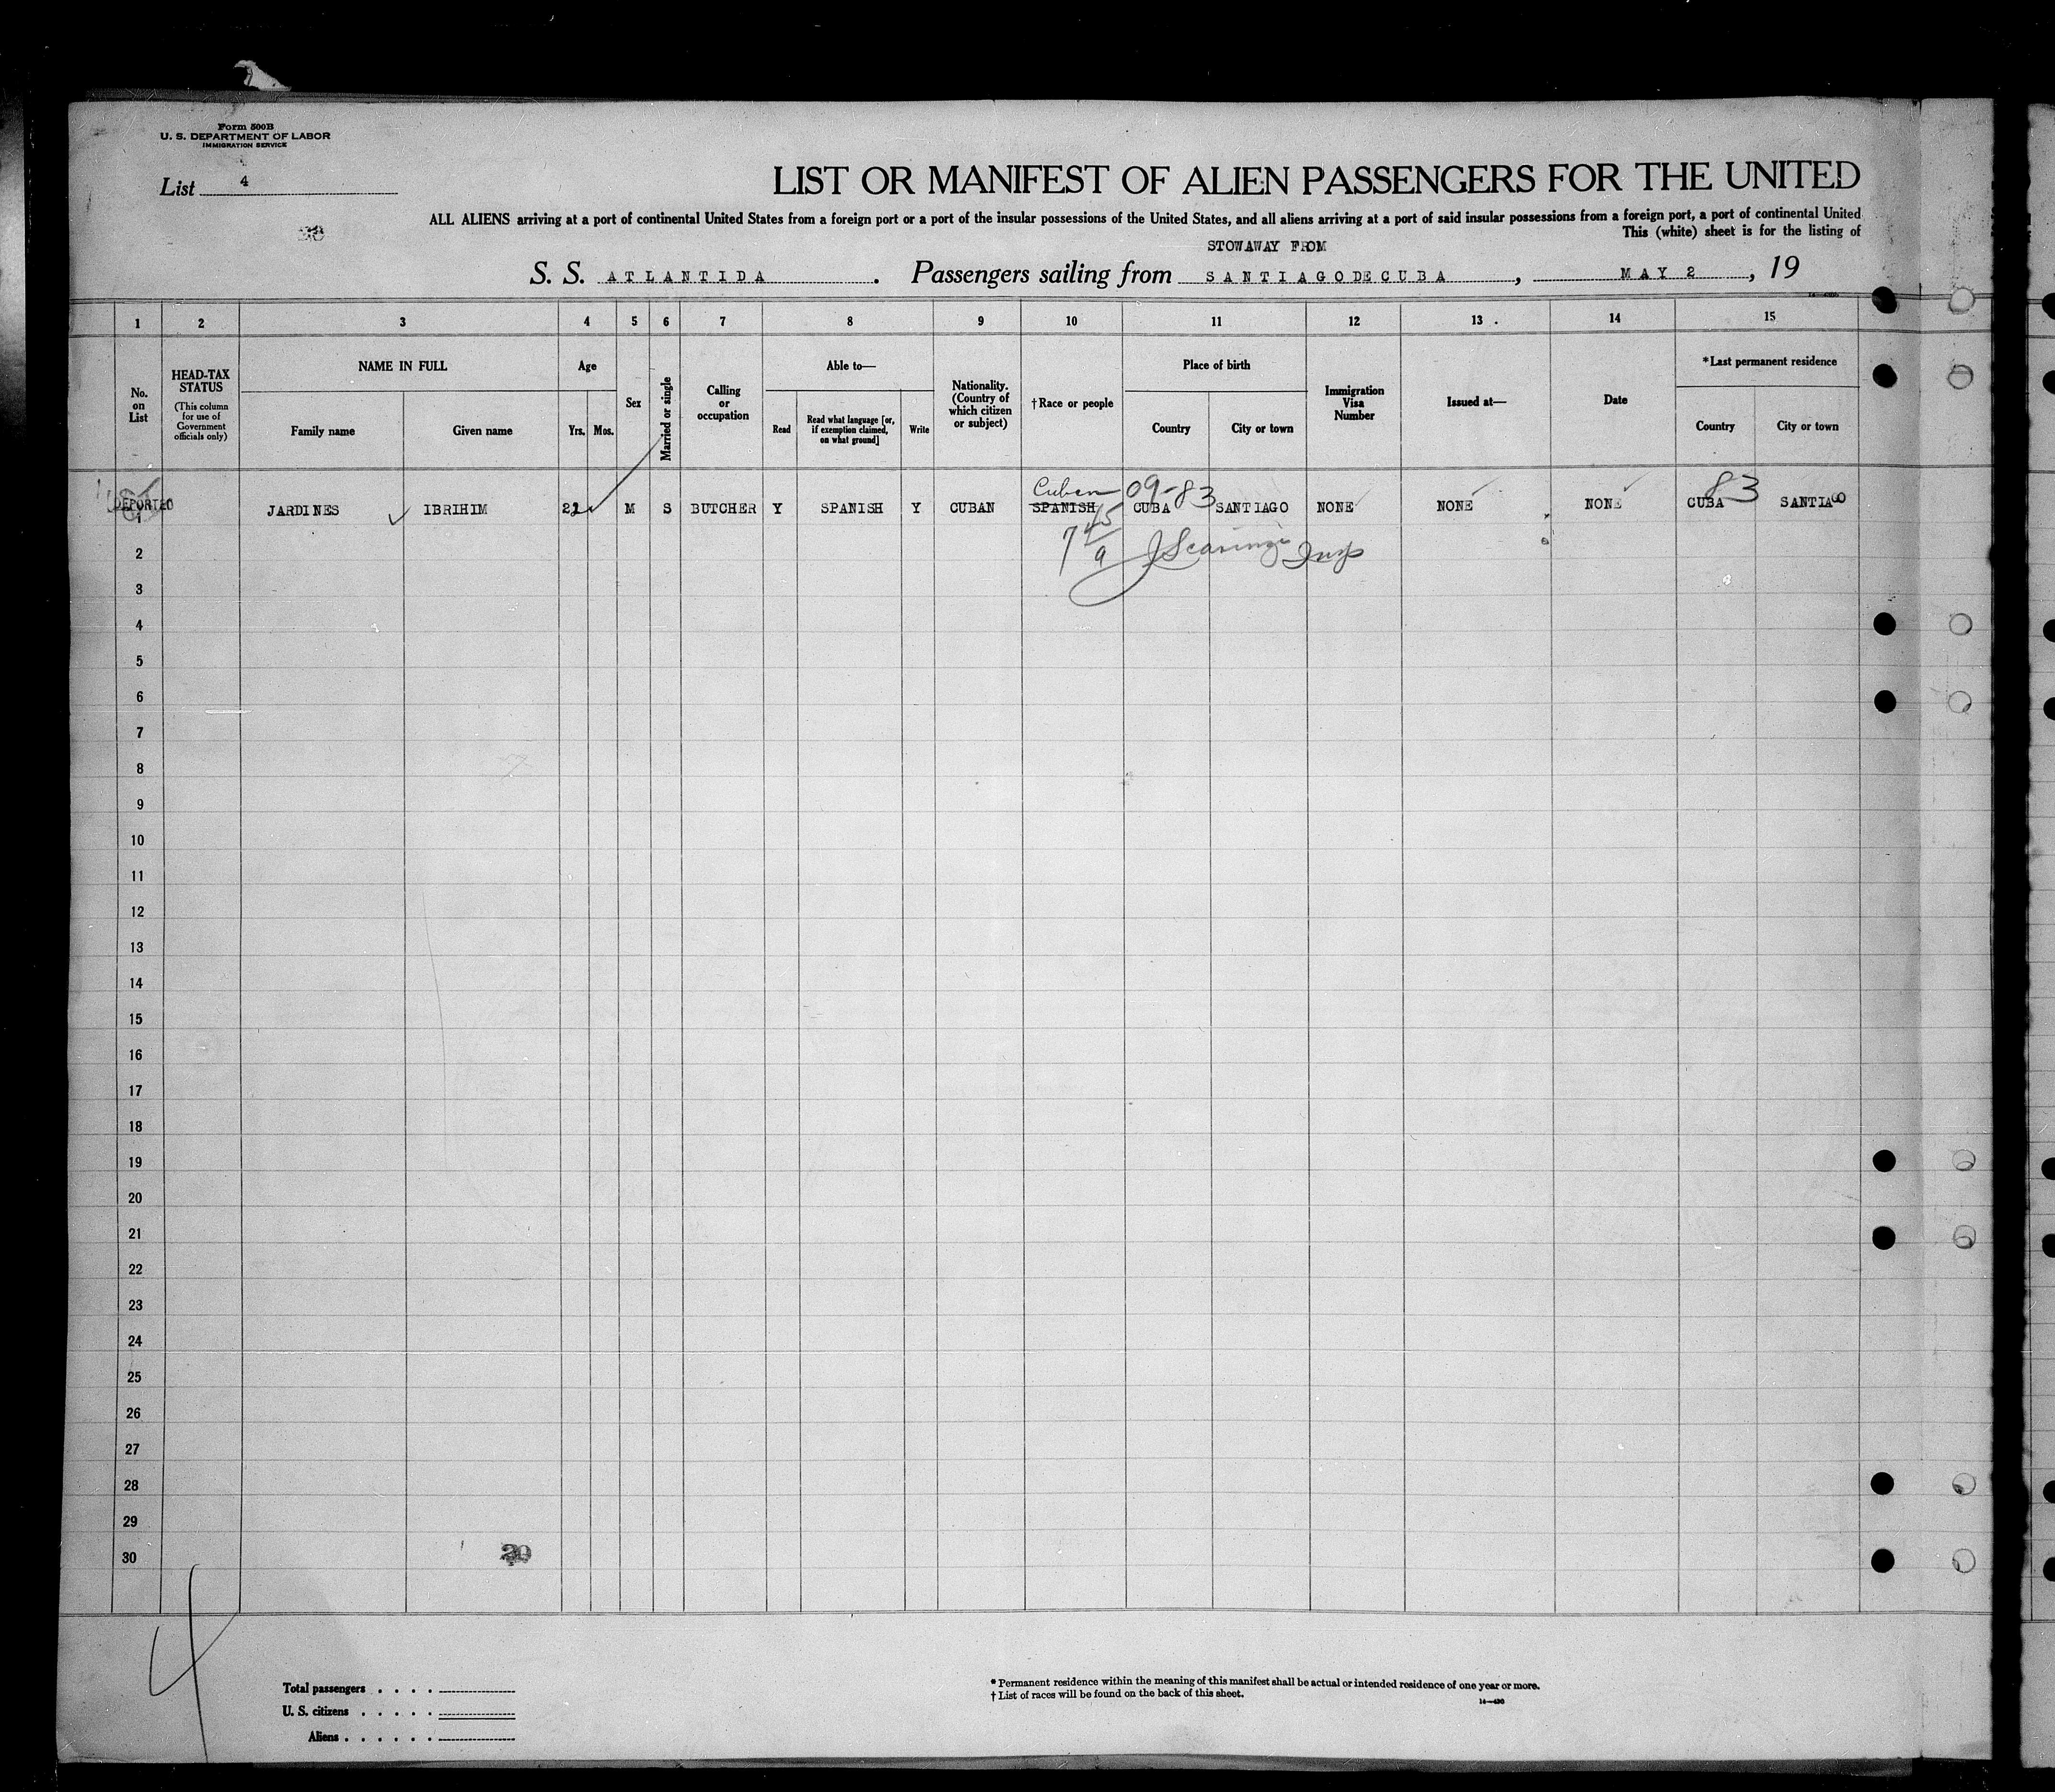 Form 500B
U. S. DEPARTMENT OF LABOR
IMMIGRATION SERVICE
List 4
LIST OR MANIFEST OF ALIEN PASSENGERS FOR THE UNITED
ALL ALIENS arriving at a port of continental United States from a foreign port or a port of the insular possessions of the United States, and all aliens arriving at a port of said insular possessions from a foreign port, a port of continental United
This (white) sheet is for the listing of
STOWAWAY FROM
S. S. ATLANTIDA. Passengers sailing from SANTIAGO DE CUBA, MAY 2, 19
1 2 3 4 5 6 7 8 9 10 11 12 13 14 15
No. on List
HEAD-TAX STATUS
(This column for use of Government officials only)
NAME IN FULL
Family name
Given name
Age
Yrs. Mos.
Sex
Married or single
Calling or occupation
Able to—
Read
Read what language [or, if exemption claimed, on what ground]
Write
Nationality. (Country of which citizen or subject)
†Race or people
Place of birth
Country
City or town
Immigration Visa Number
Issued at—
Date
*Last permanent residence
Country
City or town
Cuban 09-83 83
DEPORTED
1 JARDINES IBRIHIM M S BUTCHER Y SPANISH Y CUBAN SPANISH CUBA SANTIAGO NONE NONE NONE CUBA SANTIAGO
2
3
4
5
6
7
8
9
10
11
12
13
14
15
16
17
18
19
20
21
22
23
24
25
26
27
28
29
30
4
Total passengers . . . .
U. S. citizens . . . . .
Aliens . . . . . .
* Permanent residence within the meaning of this manifest shall be actual or intended residence of one year or more.
† List of races will be found on the back of this sheet.